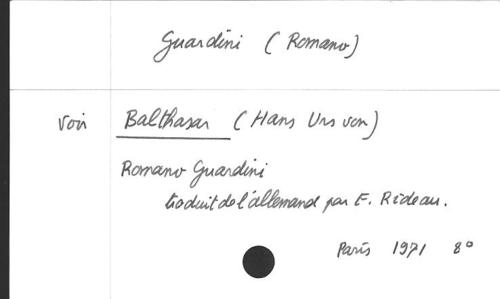 Guardini (Romano)
voir Balthasar (Hans Urs von)
Romano Guardini
traduit de l'allemand par E. Rideau.
Paris 1971 8°